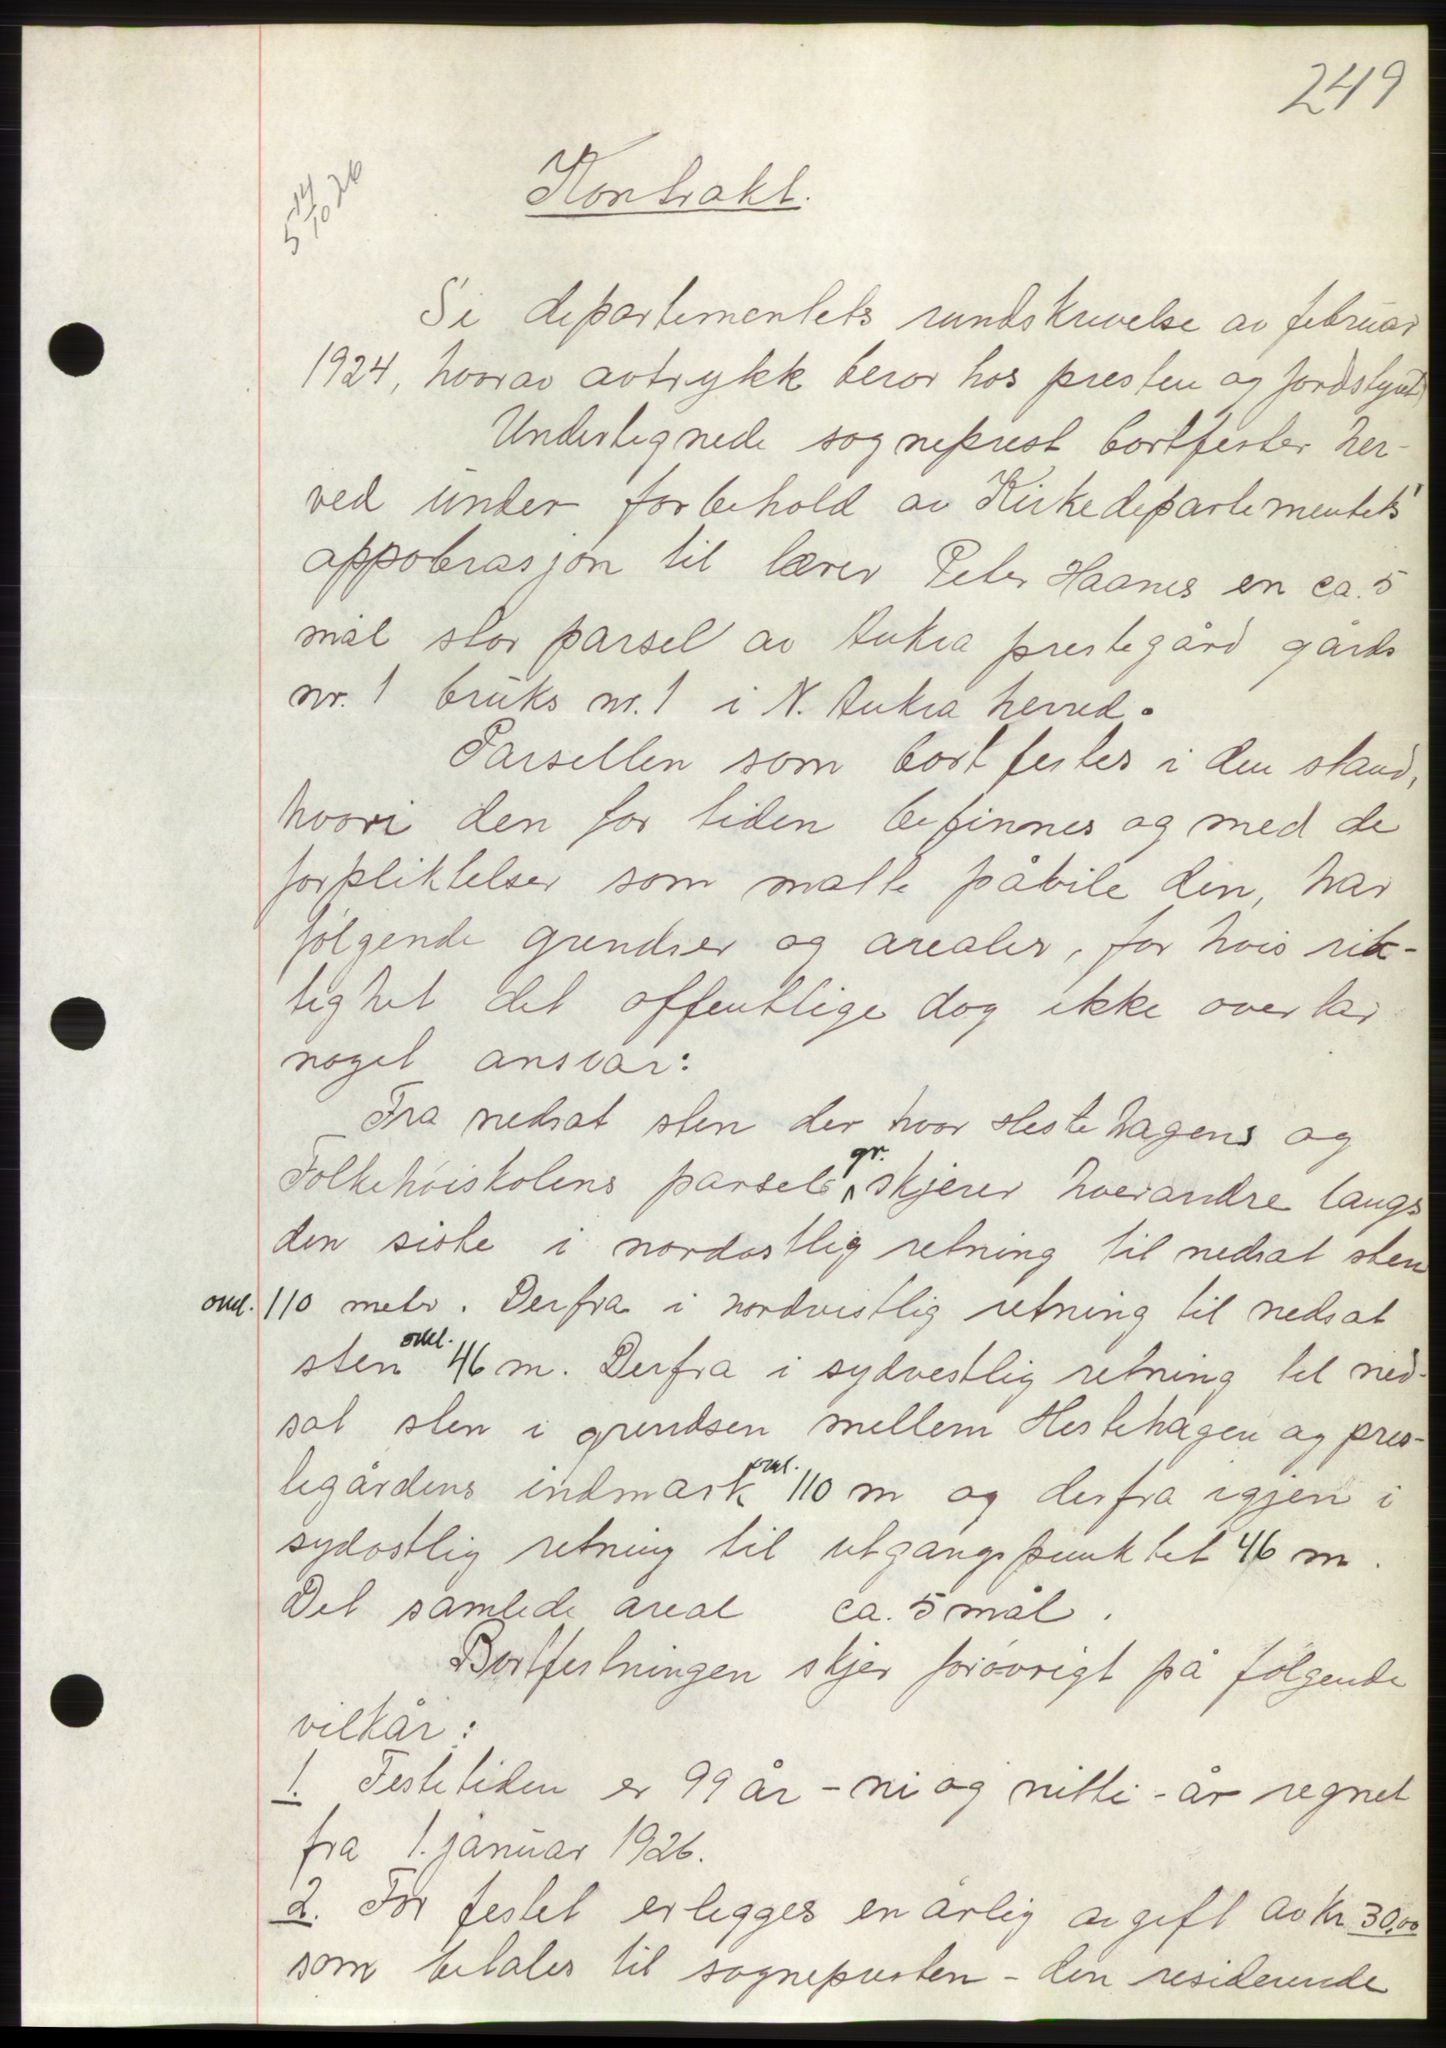 249
5 14/10 26
Kontrakt.
Si departementets rundskrivelse av februar
1924, hvorav avtrykk beror hos presten og jordstyret
Undertegnede sogneprest bortfester her-
ved under forbehold av Kirkedepartementets
appobrasjon til lærer Peter Haanes en ca. 5
mål stor parsel av Aukra prestegård gårds
nr. 1 bruks nr. 1 i N. Aukra herred.
Parsellen som bortfestes i den stand,
hvori den for tiden befinnes og med de
forpliktelser som matte påbile den, har
følgende grendser og arealer, for hvis rik-
tighet det offentlige dog ikke overtar
noget ansvar:
Fra nedsat sten der hvor Hestehagens og
gr.
Folkehøiskolens parsels skjerer hverandre langs
den siste i nordostlig retning til nedsat sten
omt. 110 metr. Derfra i nordvestlig retning til nedsat
omt.
sten 46 m. Derfra i sydvestlig retning til ned-
sat sten i grendsen mellem Hestehagen og pres-
omt.
tegårdens indmark 110 m og derfra igjen i
sydostlig retning til utgangspunktet 46 m.
Det samlede areal ca. 5 mål.
Bortfestningen skjer forøvrigt på følgende
vilkår:
1. Festetiden er 99 år - ni og nitti - år regnet
fra 1. januar 1926.
2. For festet erlegges en årlig avgift av kr 30,00
som betales til sognepresten - den residerende